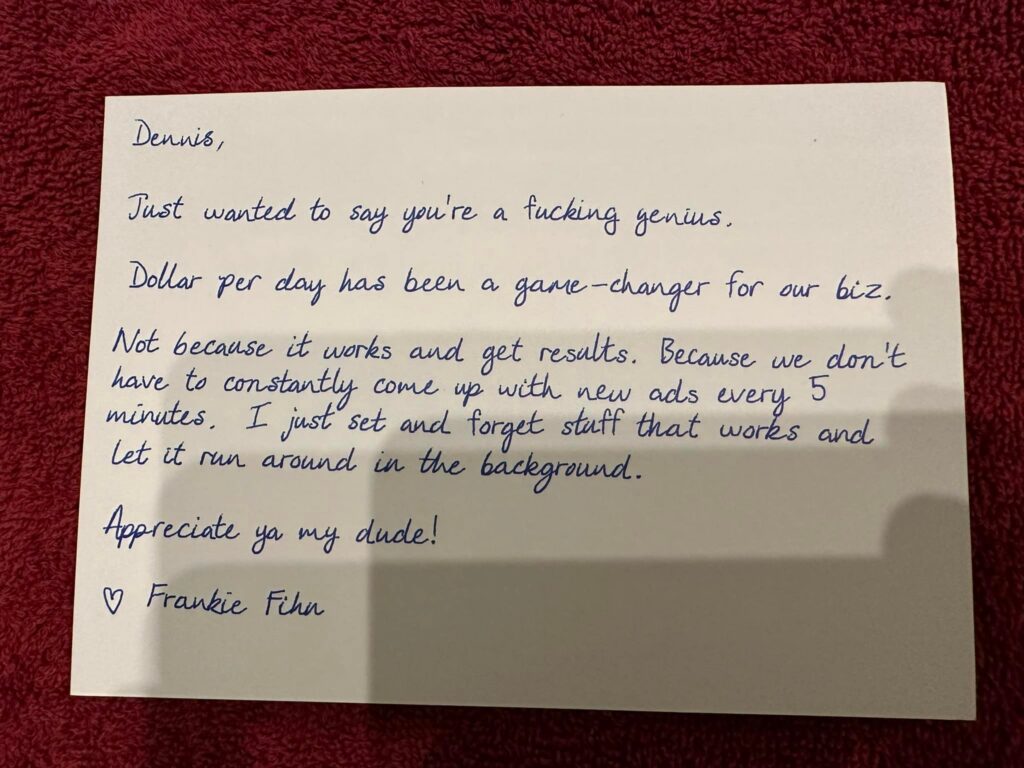 Dennis,
Just wanted to say you're a fucking genius.
Dollar per day has been a game-changer for our biz.
Not because it works and get results. Because we don't
have to constantly come up with new ads every 5
minutes. I just set and forget stuff that works and
let it run around in the background.
Appreciate ya my dude!
♡ Frankie Fihn